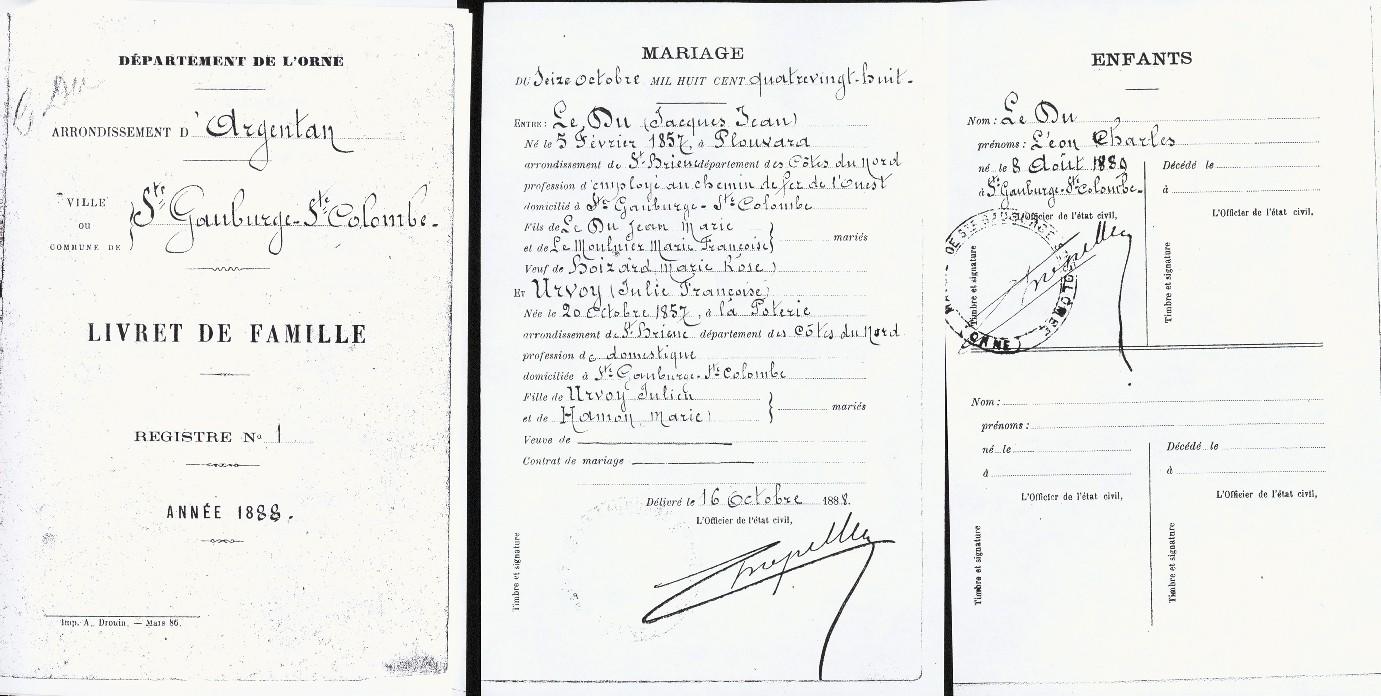 DÉPARTEMENT DE L'ORNE
Le Du
ARRONDISSEMENT D'Argentan
VILLE
OU
COMMUNE DE
Ste Gauburge-Ste Colombe.
LIVRET DE FAMILLE
REGISTRE No 1
ANNÉE 1888.
Imp. A. Drouin. — Mars 86.
MARIAGE
DU Seize octobre MIL HUIT CENT quatrevingt-huit.
ENTRE: Le Du (Jacques Jean)
Né le 5 Février 1857, à Plouvara
arrondissement de St Brieuc département des Côtes du Nord
profession d'employé au chemin de fer de l'Ouest
domicilié à Ste Gauburge-Ste Colombe
Fils de Le Du Jean Marie
et de Le Moulnier Marie Françoise
mariés
Veuf de Boizard Marie Rose)
ET Urvoy (Julie Françoise)
Née le 20 octobre 1857, à la Poterie
arrondissement de St Brieuc département des Côtes du Nord
profession de domestique
domiciliée à Ste Gauburge-Ste Colombe
Fille de Urvoy Julien
et de Hamon Marie)
mariés
Veuve de
Contrat de mariage
Délivré le 16 Octobre 1888.
L'Officier de l'état civil,
Timbre et signature
ENFANTS
Nom: Le Du
prénoms: Léon Charles
né le 8 Août 1889
à Ste Gauburge-Ste Colombe-
L'Officier de l'état civil,
Timbre et signature
ORNE
Décédé le
à
L'Officier de l'état civil,
Timbre et signature
Nom:
prénoms:
né le
à
L'Officier de l'état civil,
Timbre et signature
Décédé le
à
L'Officier de l'état civil,
Timbre et signature